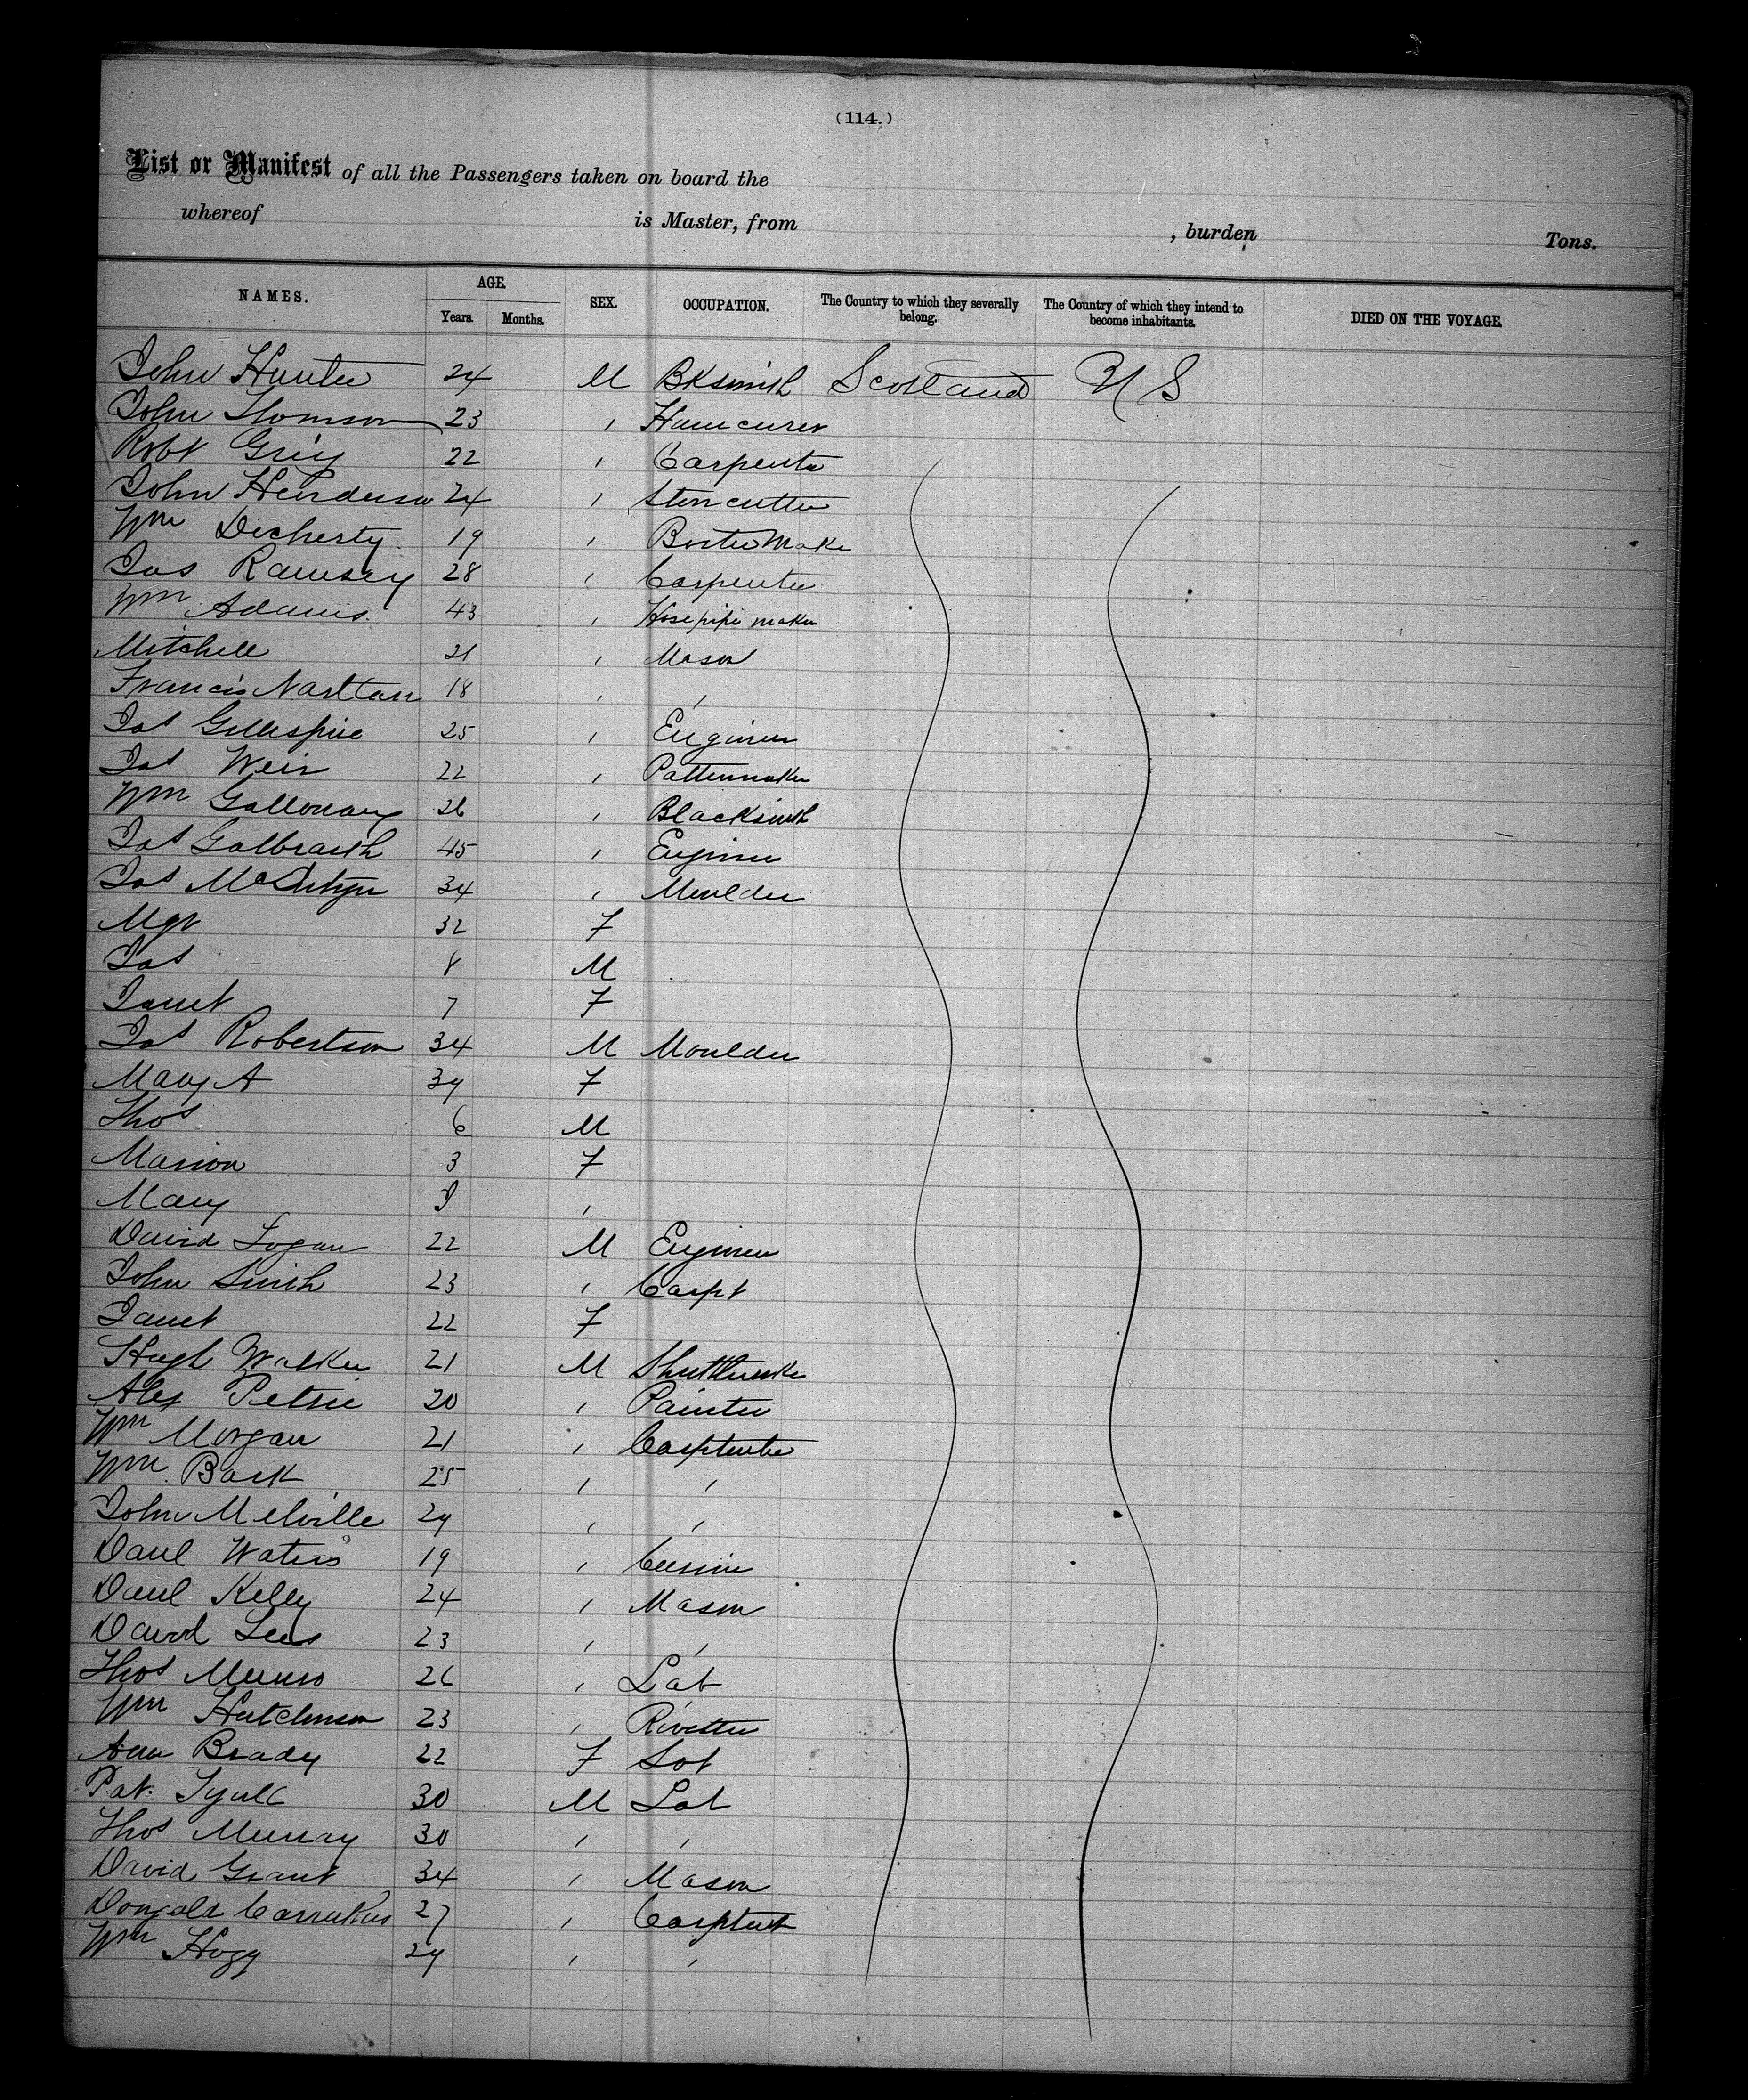 (114.)
List or Manifest of all the Passengers taken on board the
whereof is Master, from , burden Tons.
NAMES. AGE. SEX. OCCUPATION. The Country to which they severally belong. The Country of which they intend to become inhabitants. DIED ON THE VOYAGE.
Years. Months.
John Hunter 24 M BKsmith Scotland U S
John Thomson 23 ,
Robt Greig 22 , Carpenter
John Henderson 24 , Stoncutter
Wm Docherty 19 , Boilermake
Jas Ramsey 28 , Carpenter
Wm Adams 43 , Hosepipe maker
Mitchell 21 , Mason
Francis 18 , ,
Jas Gillespie 25 , Engineer
Jas Weir 22 , Patternmaker
Wm Galloway 26 , Blacksmith
Jas Galbraith 45 , Engineer
Jas McIntyre 34 , Moulder
Mgt 32 F
Jas 8 M
Janet 7 F
Jas Robertson 34 M Moulder
Mary A 34 F
Thos 6 M
Marion 3 F
Mary ,
David Logan 22 M Engineer
John Smith 23 , Carpt
Janet 22 F
Hugh Walker 21 M
Alex Petrie 20 , Painter
Wm Morgan 21 , Carptenter
Wm Bark 25 , ,
John Melville 24 , ,
Danl Waters 19 ,
Danl Kelly 24 , Mason
David Lees 23 , ,
Thos Munro 26 , Lab
Wm Hutchinson 23 , Rivetter
Ann Brady 22 F
Pat. 30 M Lab
Thos Murray 30 , ,
David Grant 34 , Mason
Dongald Carruthers 27 , Carptent
Wm Hogg 24 , ,